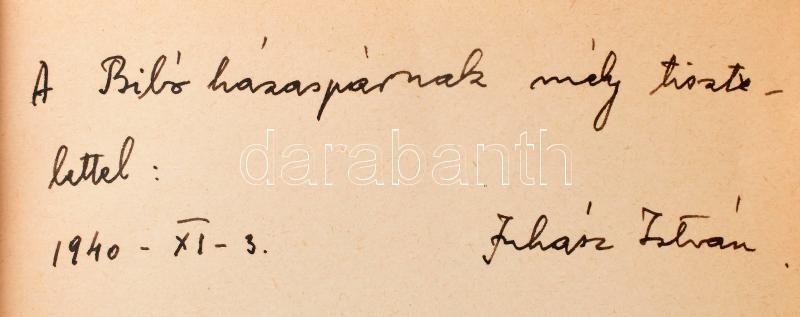 A Bibó házaspárnak mély tiszte-
lettel:
darabanth
1940 - XI - 3.
Juhász István.